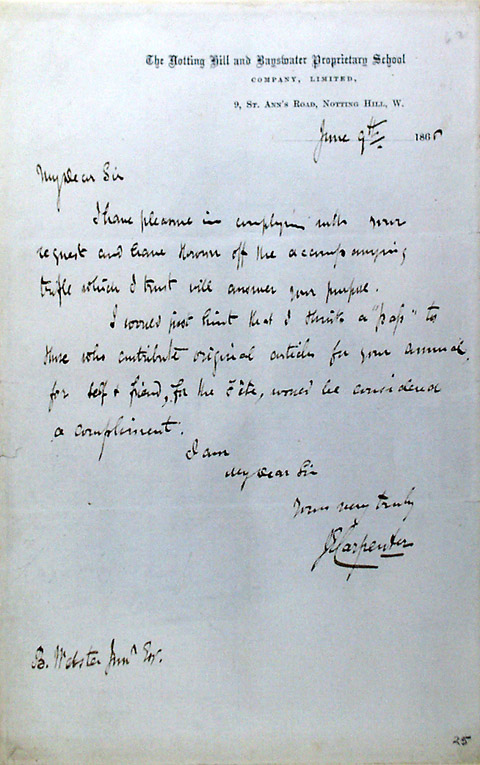 The Notting Hill and Bayswater Proprietary School
COMPANY, LIMITED,
9, ST. ANN'S ROAD, NOTTING HILL, W.
June 9th 1865
My Dear Sir
I have pleasure in complying with your
request and have thrown off the accompanying
trifle which I trust will answer your purpose.
I would just hint that I think a "pass" to
those who contribute original articles for your annual,
for self & friend, for the Fête, would be considered
a compliment.
I am
My Dear Sir
Yours very truly
J E Carpenter
B. Webster Junr Esq.
25